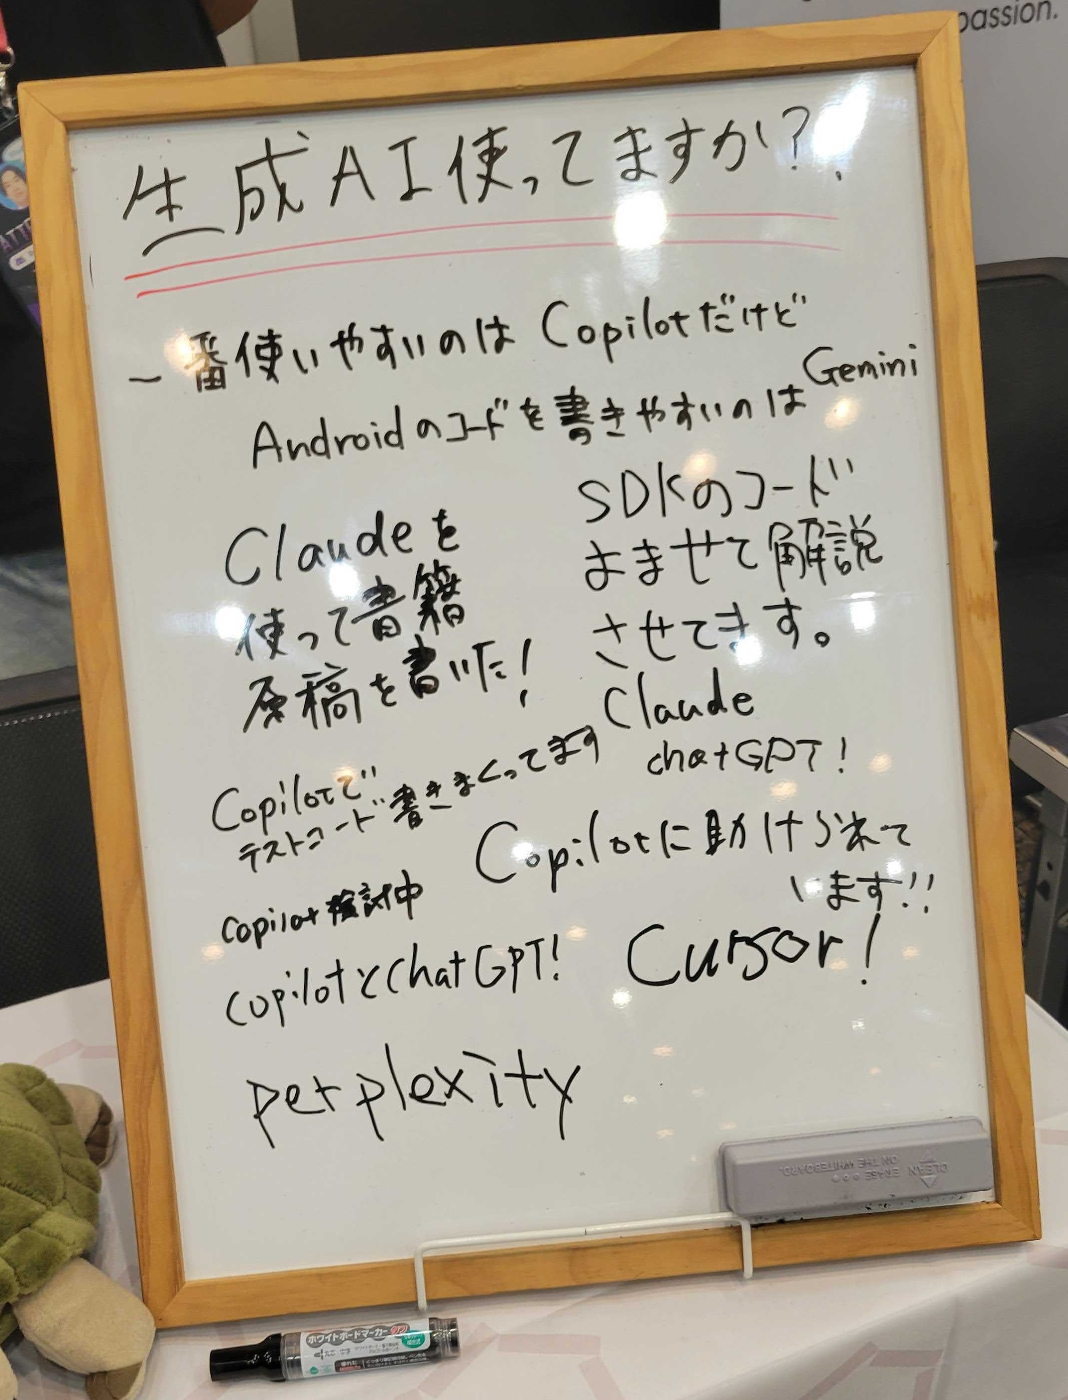 passion.
生成AI使ってますか?
一番使いやすいのはCopilotだけど
Androidのコードを書きやすいのはGemini
Claudeを
使って書籍
原稿を書いた!
SDKのコード
よませて解説
させてきす。
Claude
chatGPT!
Copilotで
テストコード書きまくってます
Copilotに助けられて
います!!
copilot検討中
copilotとChatGPT!
Cursor!
perplexity
CLEAN
ERASE
ON THE WHITEBOARD.
ホワイトボードマーカー